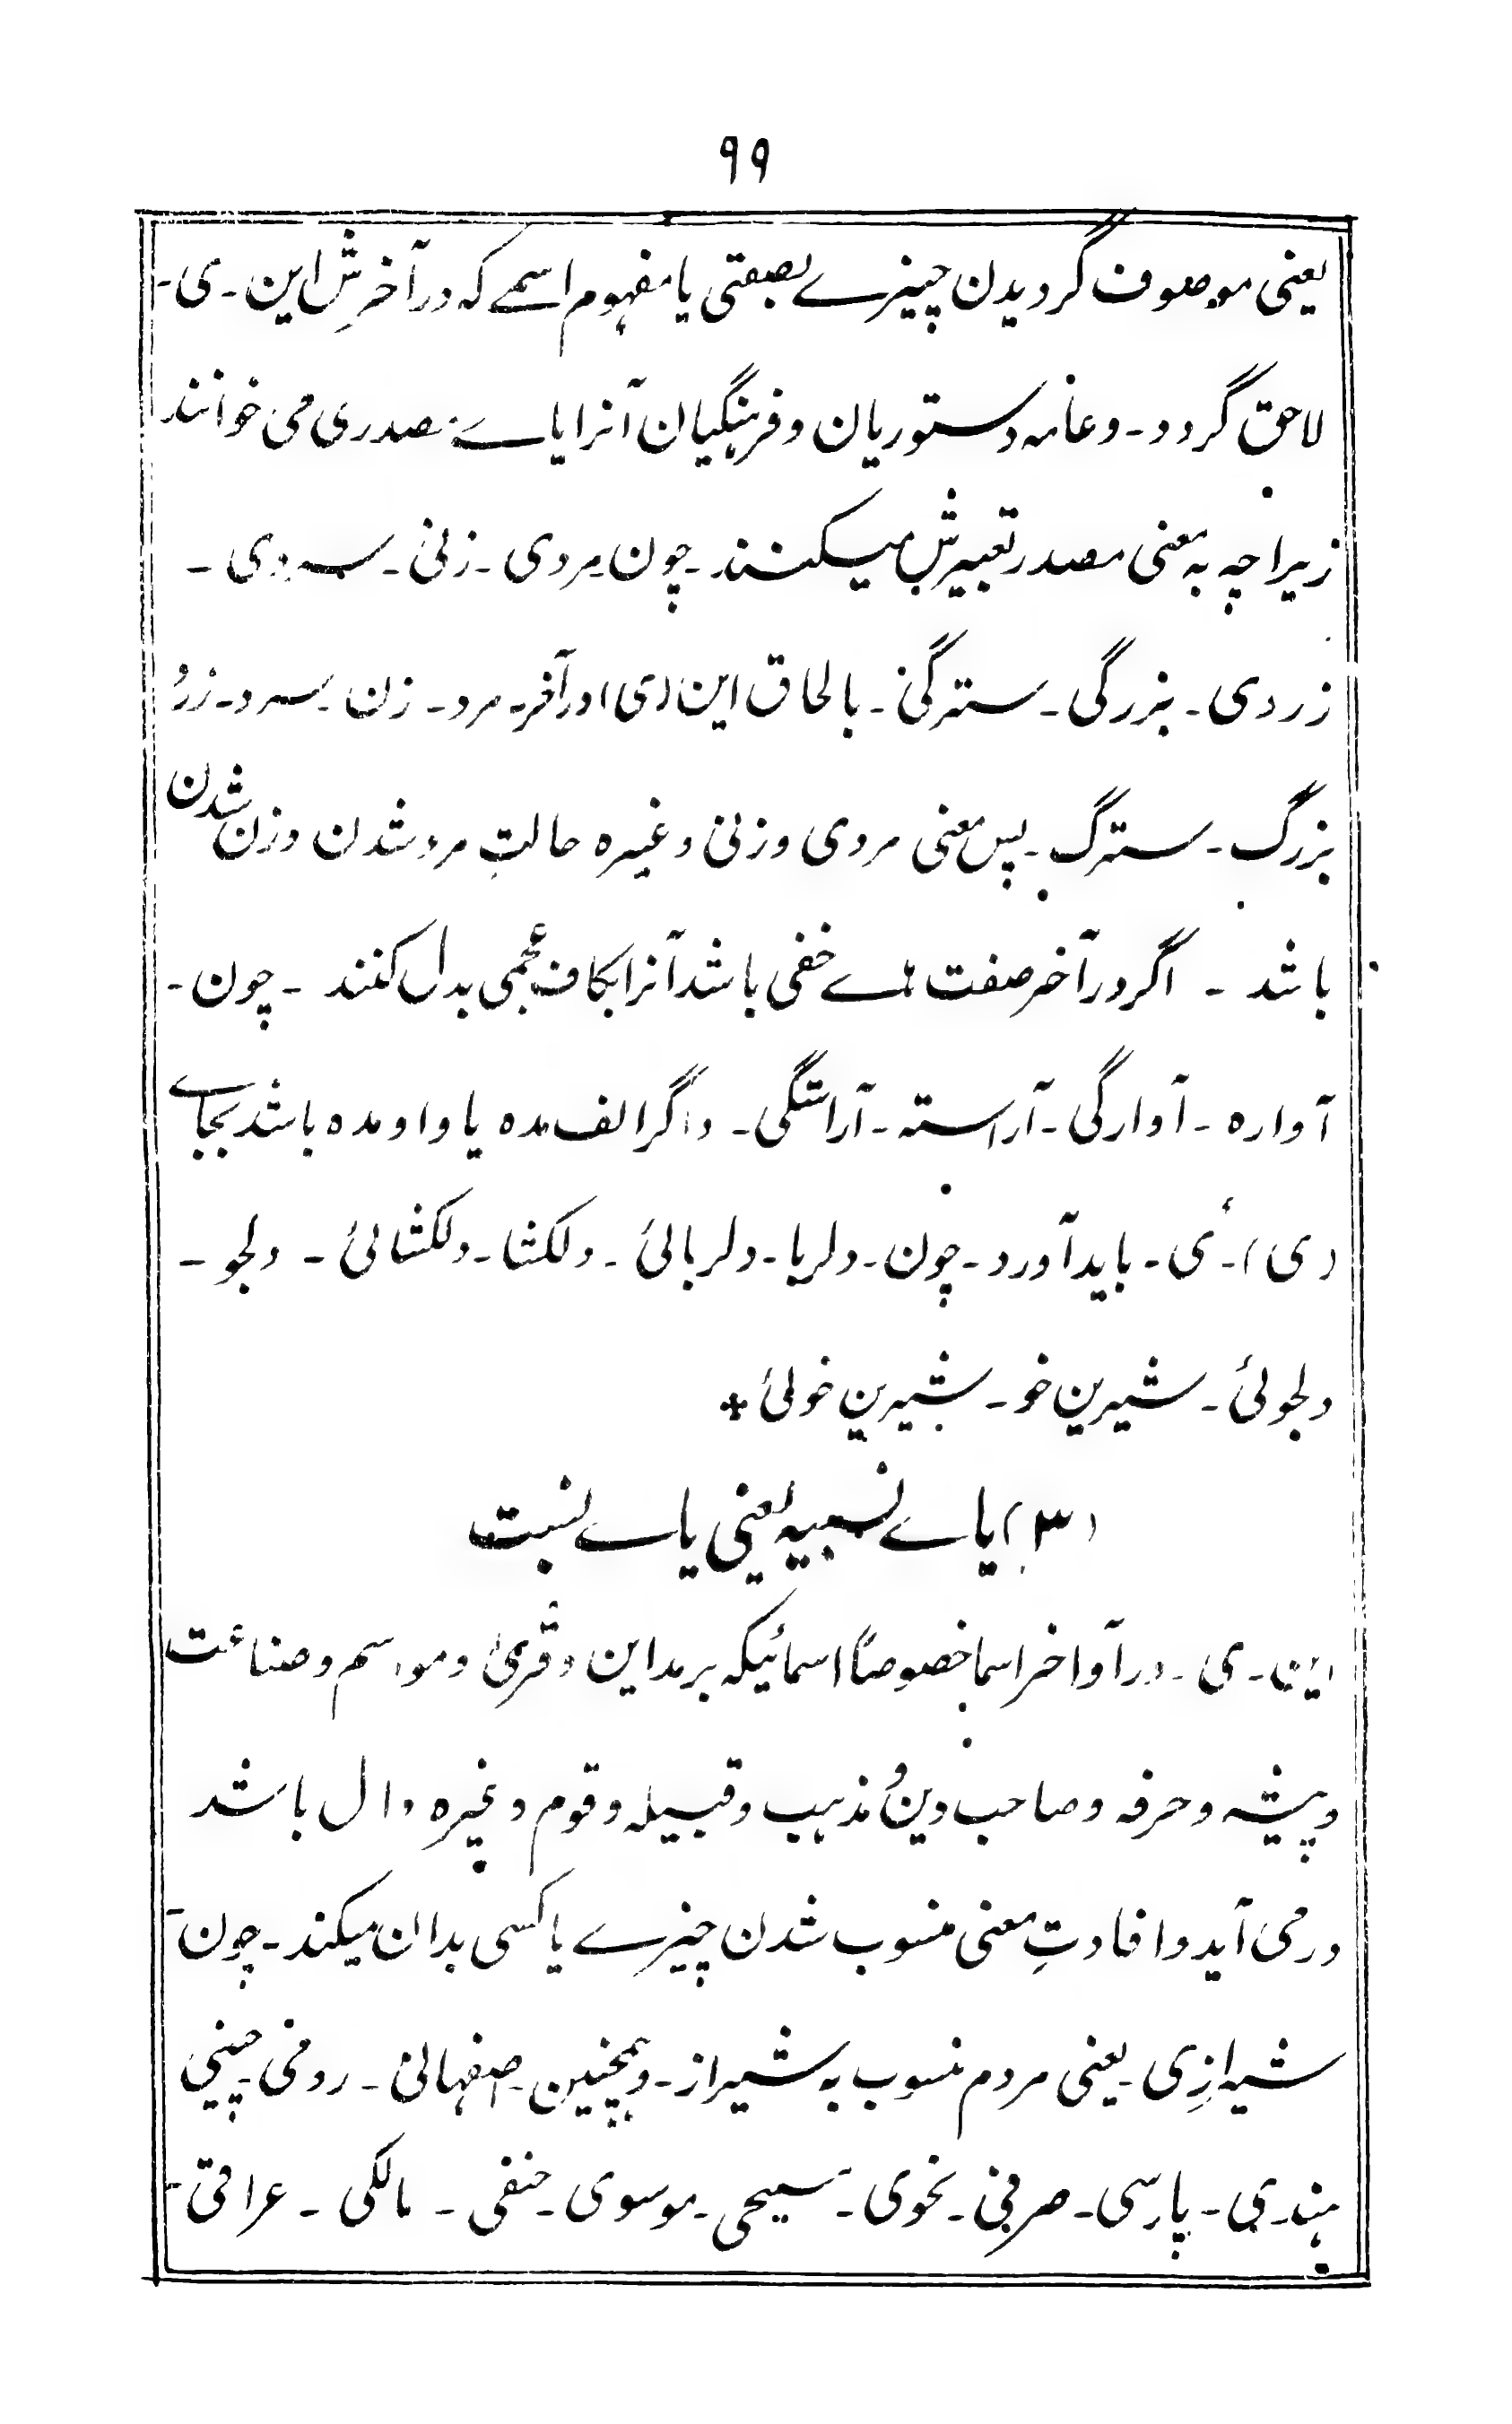 ۹۹
یعنی موصوف گردیدن چیزے بصفتی یا مفہوم اسمے کہ در آخرِش این ـ ی ـ
لاحق گردد ـ و عامہ دستوریان و فرہنگیان آنرا یاے مصدری می خوانند
زیراچہ بہ معنی مصدر تعبیرش میکنند ـ چون ـ مردی ـ زنی ـ سردی ـ
زردی ـ بزرگی ـ سترگی ـ بالحاق این (ی) در آخر ـ مرد ـ زن ـ سرد ـ زرد
بزرگ ـ سترگ ـ پس معنی مردی و زنی و غیرہ حالتِ مرد شدن و زن شدن
باشد ـ اگر در آخر صفت ہاے خفی باشد آنرا بکاف عجمی بدل کنند ـ چون ـ
آوارہ ـ آوارگی ـ آراستہ ـ آراستگی ـ و اگر الف مدہ یا واو مدہ باشد بجاے
(ی) ـ ئی ـ باید آورد ـ چون ـ دلربا ـ دلربائی ـ دلکشا ـ دلکشائی ـ دلجو ـ
دلجوئی ـ شیرین خو ـ شیرین خوئی *
(۳) یاے نسبیہ یعنی یاے نسبت
این ـ ی ـ در آواخر اسما خصوصاً اسمائیکہ بر مداین و قریٰ و مواسم و صناعت
و پیشہ و حرفہ و صاحب دین و مذہب و قبیلہ و قوم و غیرہ دال باشد
در می آید و افادتِ معنی منسوب شدن چیزے یا کسی بدان میکند ـ چون ـ
شیرازِی ـ یعنی مردم منسوب بہ شیراز ـ و ہمچنین ـ اصفہانی ـ رومی ـ چینی
ہندی ـ پارسی ـ صرفی ـ نحوی ـ مسیحی ـ موسوی ـ حنفی ـ مالکی ـ عراقی ـ